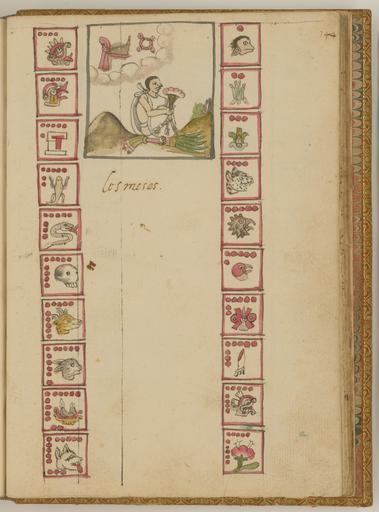 los meses.